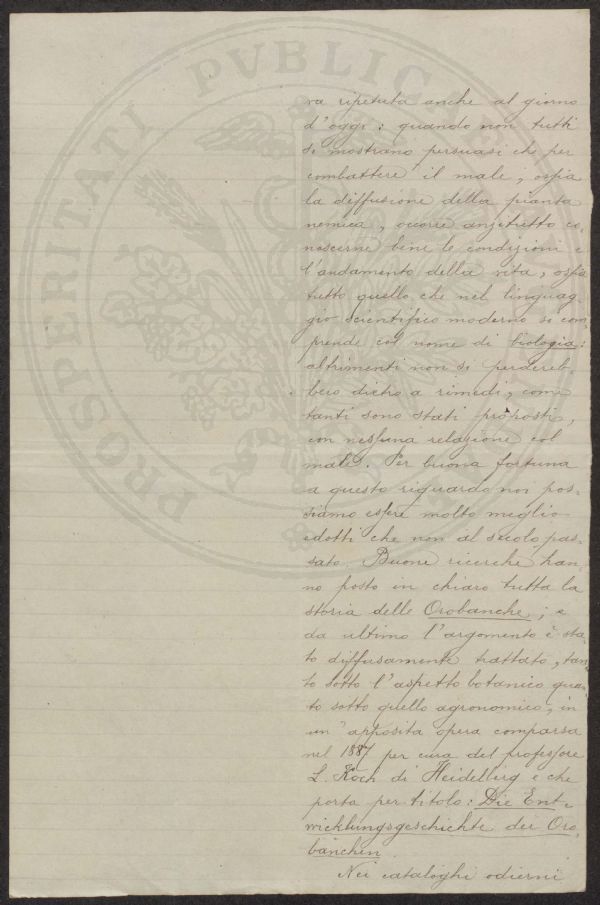 PROSPERITATI PVBLICAE
va ripetuta anche al giorno
d'oggi: quando non tutti
si mostrano persuasi che per
combattere il male, ossia
la diffusione della pianta
nemica, occorre anzitutto co-
noscerne bene le condizioni e
l'andamento della vita, ossia
tutto quello che nel linguag-
gio scientifico moderno si com-
prende col nome di biologia:
altrimenti non si perdereb-
bero dietro a rimedi, come
tanti sono stati proposti,
con nessuna relazione col
male. Per buona fortuna
a questo riguardo noi pos-
siamo essere molto meglio
edotti che non al secolo pas-
sato. Buone ricerche han-
no posto in chiaro tutta la
storia delle Orobanche; e
da ultimo l'argomento è sta-
to diffusamente trattato, tan-
to sotto l'aspetto botanico quan-
to sotto quello agronomico, in
un'apposita opera comparsa
nel 1887 per cura del professore
L. Koch di Heidelberg e che
porta per titolo: Die Ent-
wicklungsgeschichte der Oro-
banchen.
Nei cataloghi odierni